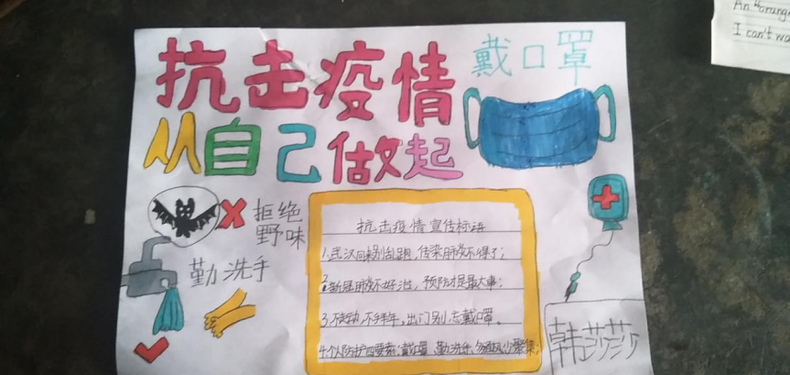 抗击疫情
戴口罩
从自己做起
拒绝
野味
勤洗手
抗击疫情宣传标语
1.武汉回来别乱跑,传染肺炎不得了;
2.新冠肺炎不好治,预防才是最大事;
3.不走动,不拜年,出门别忘戴口罩。
4.个人防护四要素:戴口罩、勤洗手、勤通风、少聚集;
韩莎莎
An orange
I can't wa